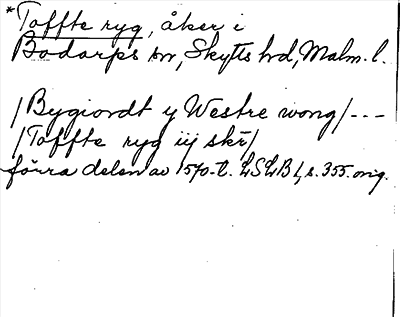 *Toffte ryg, åker i
Bodarps sn, Skytts hd, Malm. l.
/Bygiordt y Westre wong/---
/Toffte ryg iij skr̄/
förra delen av 1570-t. LSLB 1, s. 355. orig.